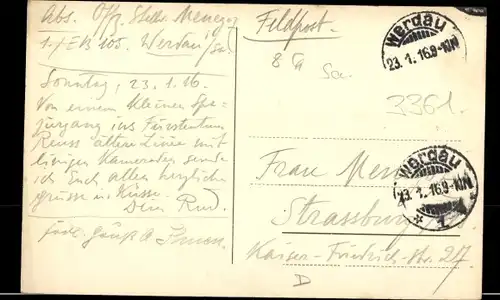 Abs. Off. Stellv. Menegoz
1./EB 105. Werdau /Sa.
Sonntag, 23.1.16.
Von einem kleinen Spa-
ziergang ins Fürstentum
Reuss ältere Linie mit
Kameraden sende
ich Euch allen herzliche
grüsse u. Küsse.
Dein Rud.
Feldpost.
8 Sa.
3361.
Werdau
23.1.16.9-10N
Werdau
23.1.16.9-10N
* 1.
Frau
Strassburg
Kaiser-Friedrich-str. 27
D